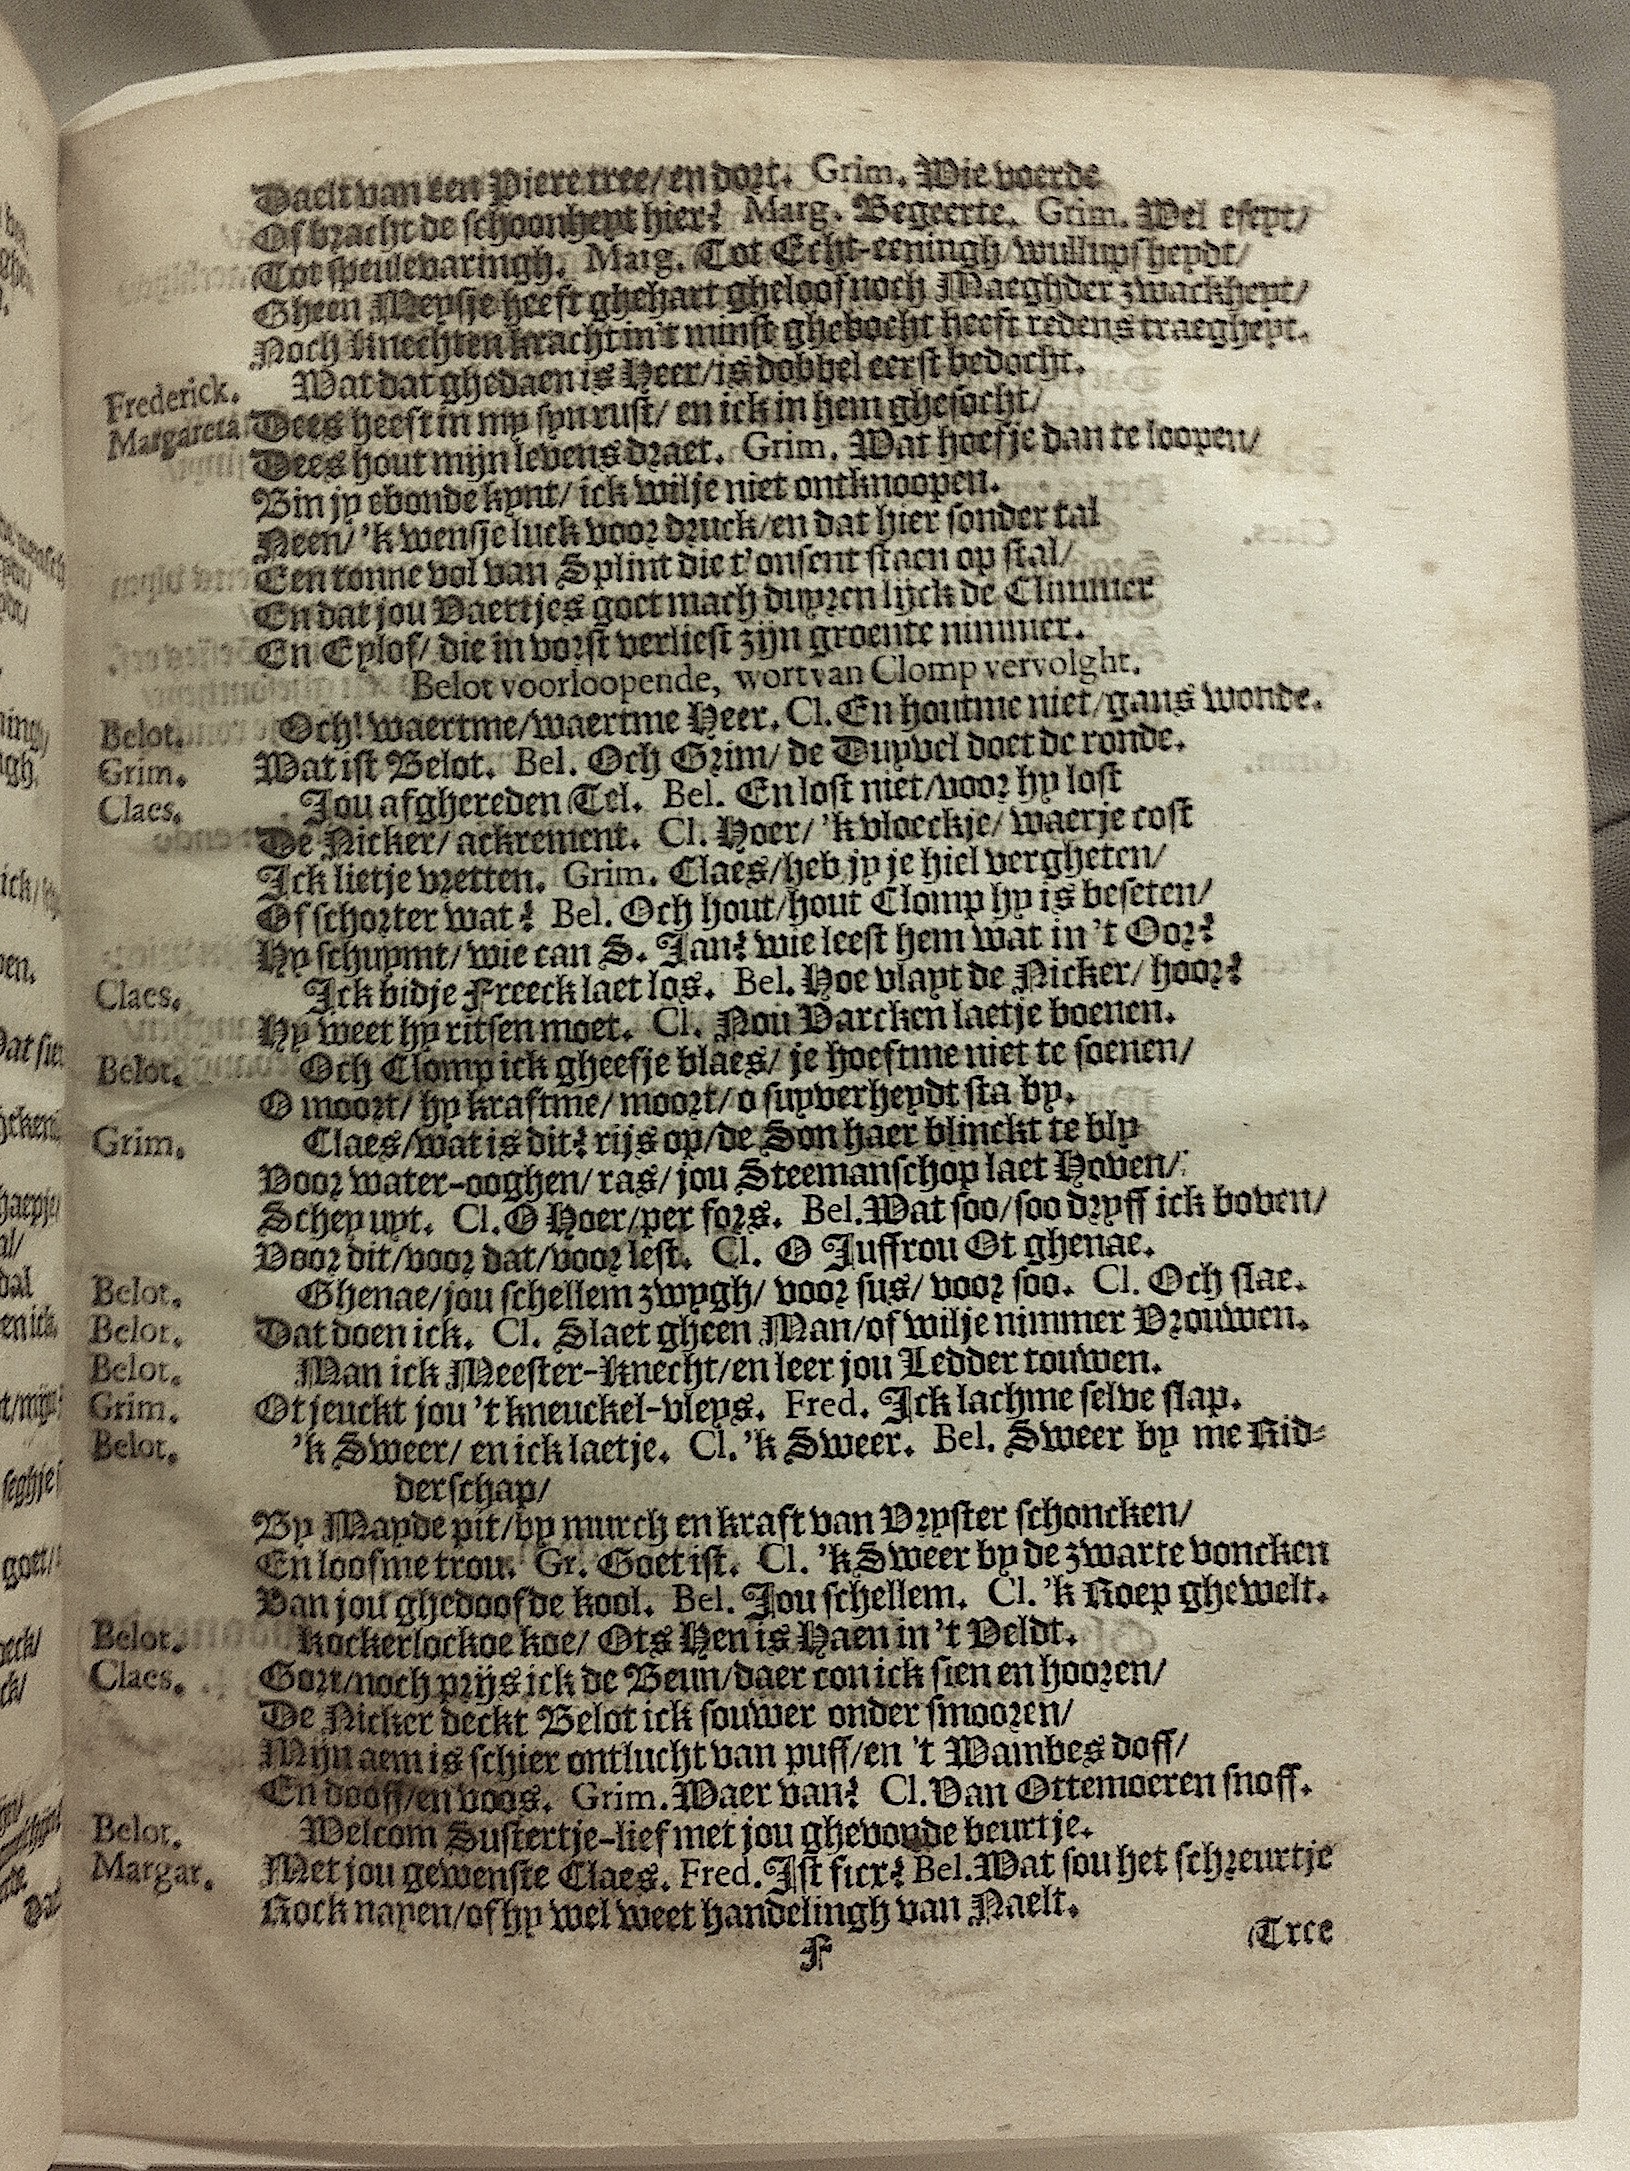 Daelt van een Piere tree/ en dort. Grim. Wie voerde
Of bracht de schoonheyt hier? Marg. Begeerte. Grim. Wel eseyt/
Tot speulevaringh. Marg. Tot Echt-eeningh/ wullupsheydt/
Gheen Meysje heeft ghehart gheloof noch Maeghder zwackheyt/
Noch knechten kracht in't minst ghebocht heeft redens traegheyt.
Frederick. Wat dat ghedaen is Heer/ is dobbel eerst bedocht.
Margareta. Dees heeft in my syn rust/ en ick in hem ghesocht/
Dees hout mijn levens draet. Grim. Wat hoefje dan te loopen/
Bin jy ebonde kynt/ ick wilje niet ontknoopen.
Neen/ 'k wensje luck voor druck/ en dat hier sonder tal
Een tonne vol van Splint die t'onsent staen op stal/
En dat jou Vaertjes goet mach duyren lijck de Climmer
En Eylof/ die in vorst verliest zijn groente nimmer.
Belot voorloopende, wort van Clomp vervolght.
Belot. Och! waertme/ waertme Heer. Cl. En houtme niet/ gans wonde.
Grim. Wat ist Belot. Bel. Och Grim/ de Duyvel doet de ronde.
Claes. Jou afghereden Tel. Bel. En lost niet/ voor hy lost
De Nicker/ ackrement. Cl. Hoer/ 'k vloeckje/ waerje cost
Ick lietje vretten. Grim. Claes/ heb jy je hiel vergheten/
Of schorter wat? Bel. Och hout/ hout Clomp hy is beseten/
Hy schuymt/ wie can S. Jan? wie leest hem wat in 't Oor?
Claes. Ick bidje Freeck laet los. Bel. Hoe vlayt de Nicker/ hoor?
Hy weet hy ritsen moet. Cl. Nou Varcken laetje boenen.
Belot. Och Clomp ick gheefje blaes/ je hoeftme niet te soenen/
O moort/ hy kraftme/ moort/ o suyverheydt sta by.
Grim. Claes/ wat is dit? rijs op/ de Son haer blinckt te bly
Voor water-ooghen/ ras/ jou Steemanschop laet Hoven/
Schey uyt. Cl. O Hoer/ per fors. Bel. Wat soo/ soo dryff ick boven/
Voor dit/ voor dat/ voor lest. Cl. O Juffrou Ot ghenae.
Belot. Ghenae/ jou schellem zwygh/ voor sus/ voor soo. Cl. Och slae.
Belot. Dat doen ick. Cl. Slaet gheen Man/ of wilje nimmer Vrouwen.
Belot. Man ick Meester-knecht/ en leer jou Ledder touwen.
Grim. Ot jeuckt jou 't kneuckel-vleys. Fred. Ick lachme selve slap.
Belot. 'k Sweer/ en ick laetje. Cl. 'k Sweer. Bel. Sweer by me Rid-
derschap/
By Mayde pit/ by murch en kraft van Vryster schoncken/
En loof me trou. Gr. Goet ist. Cl. 'k Sweer by de zwarte voncken
Van jou ghedoofde kool. Bel. Jou schellem. Cl. 'k Roep ghewelt.
Belot. Kockerlockoe koe/ Ots Hen is Haen in 't Veldt.
Claes. Gort/ noch prijs ick de Beun/ daer con ick sien en hooren/
De Nicker deckt Belot ick souwer onder smooren/
Mijn aem is schier ontlucht van puff/ en 't Wambes doff/
En dooff/ en voos. Grim. Waer van? Cl. Van Ottemoeren snoff.
Belot. Welcom Sustertje-lief met jou ghevonde beurtje.
Margar. Met jou gewenste Claes. Fred. Ist ficx? Bel. Wat sou het schreurtje
Rock nayen/ of hy wel weet handelingh van Naelt.
F
Tree